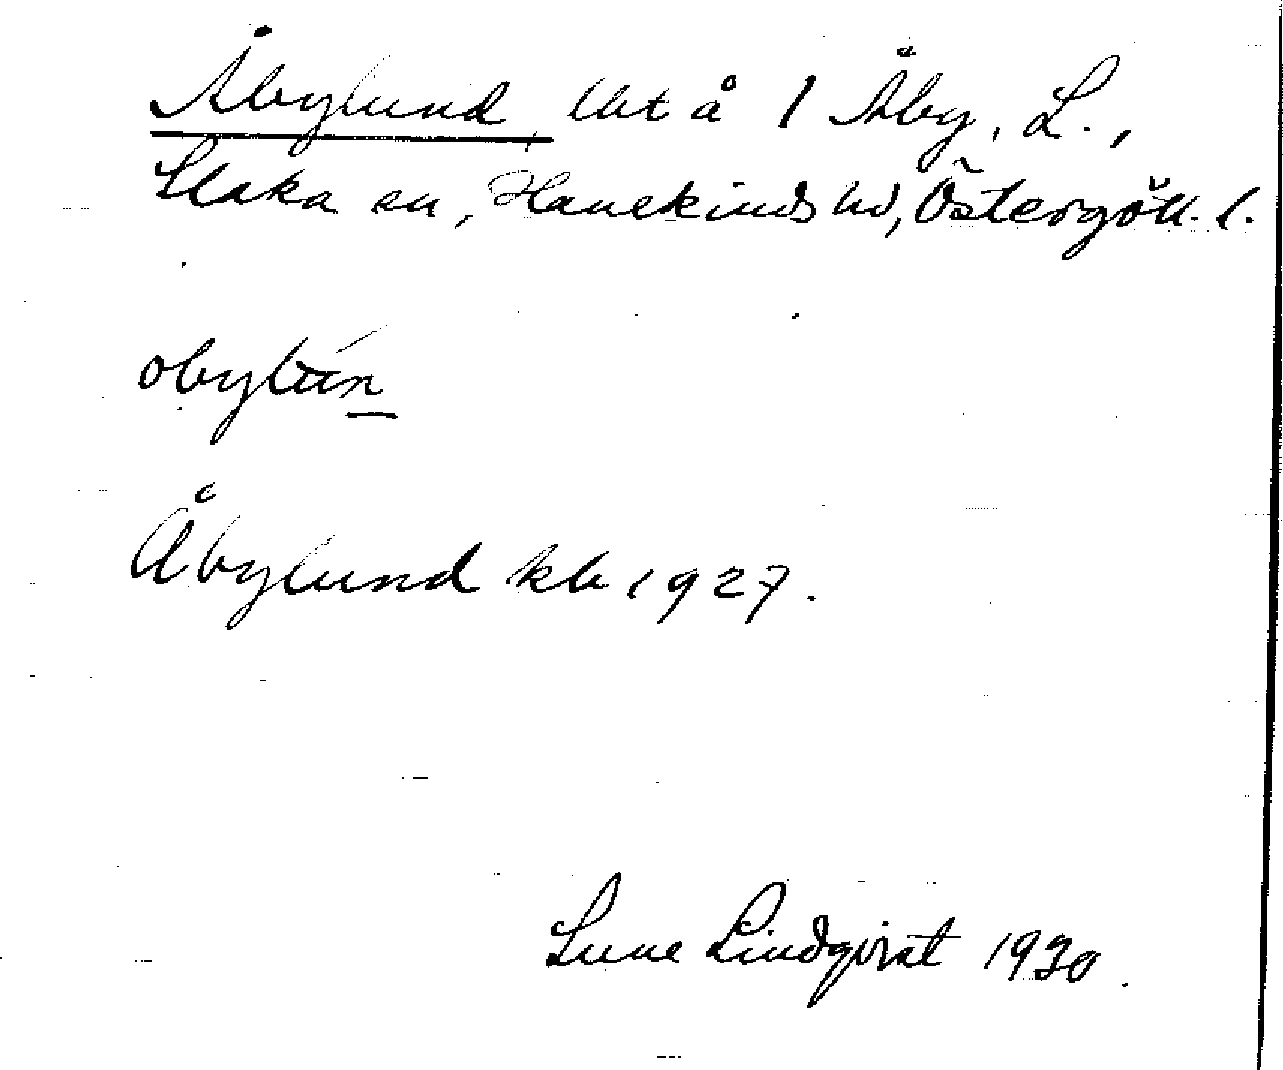 Åbylund, lht å 1 Åby, L.,
Slaka sn, Hanekinds hd, Östergötl. l.
obylún
Åbylund kb 1927.
Sune Lindqvist 1930.